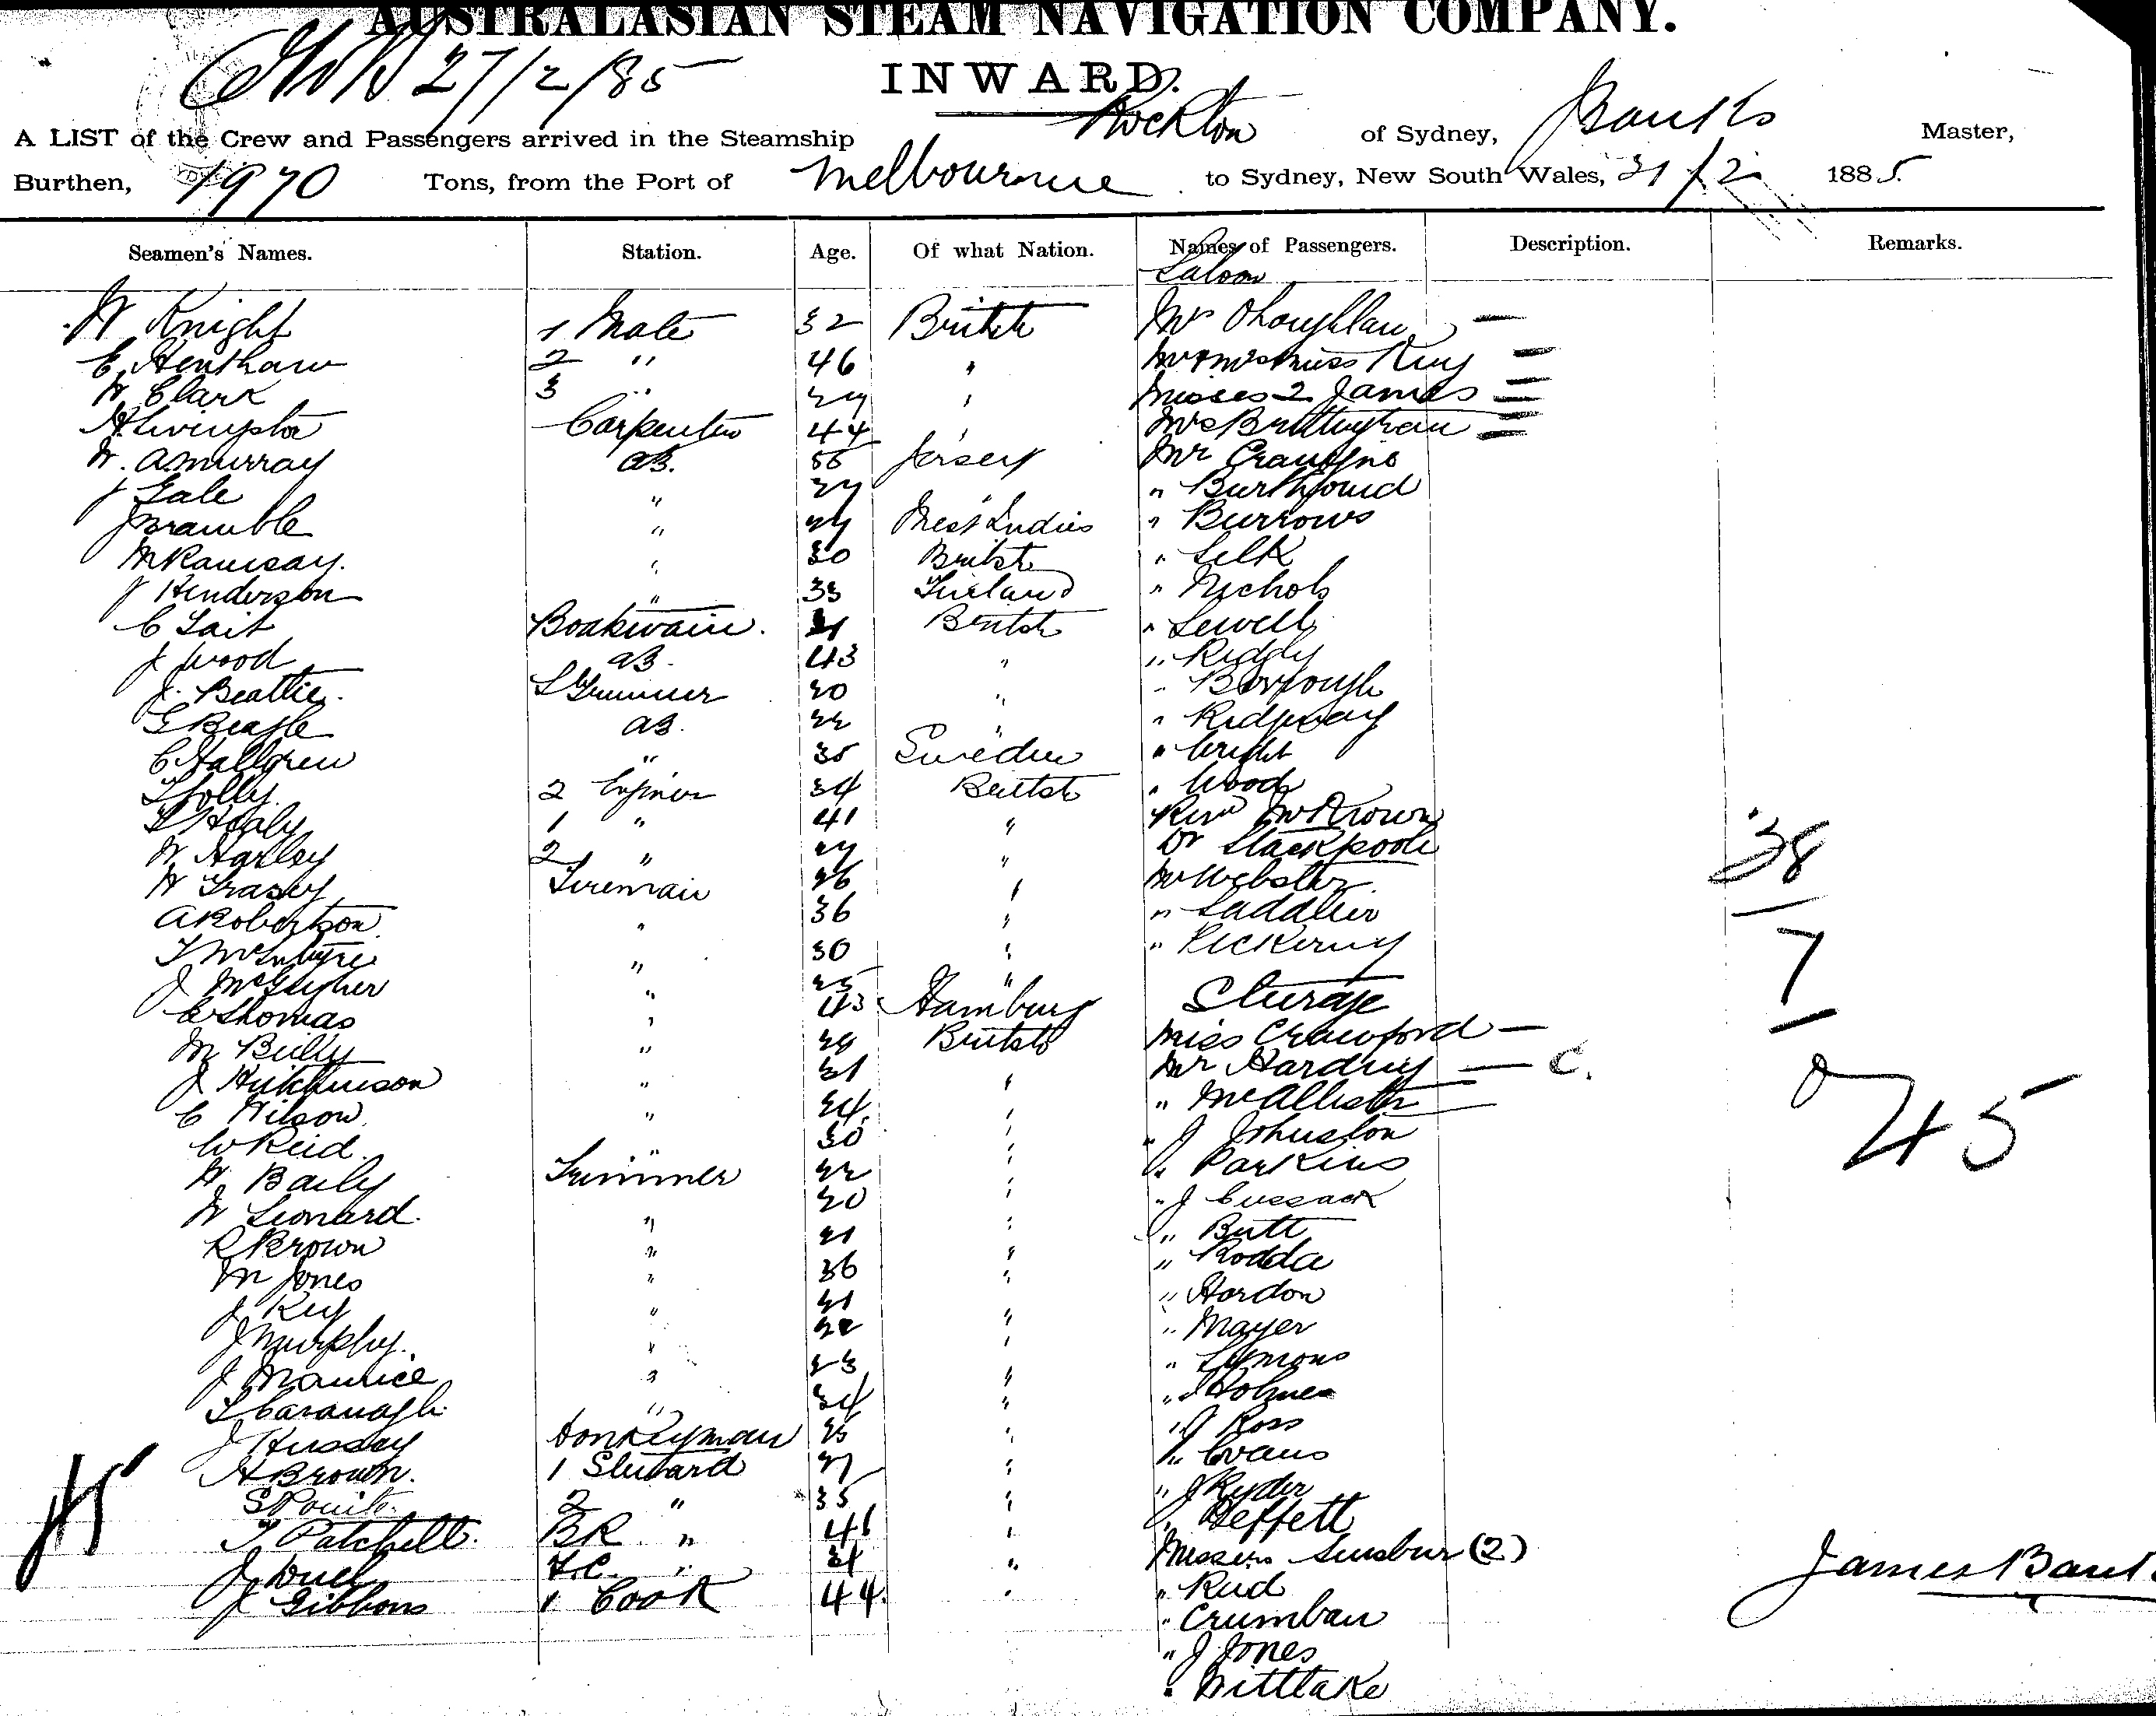 AUSTRALASIAN STEAM NAVIGATION COMPANY.
27/2/85 INWARD.
A LIST of the Crew and Passengers arrived in the Steamship Rockton of Sydney, J Banks Master,
Burthen, 1970 Tons, from the Port of Melbourne to Sydney, New South Wales, 21/2 1885.
Seamen's Names. Station. Age. Of what Nation. Names of Passengers. Description. Remarks.
Saloon
W Knight 1 Mate 32 British Mr OLoughlan —
E Henshaw 2 " 46 " Mr & Mrs & Miss King
W Clark 3 " 29 " Misses 2 James
Livingston Carpenter 44 " Mrs Brittingham
W. A Murray AB. 55 Jersey Mr
J Gale " "
J Bramble " West Indies " Burrows
M Ramsay. " 30 British " Silk
J Henderson " 33 " Nichols
C Tait Boatswain. British " Sewell
J Wood AB. 43 " " Reddy
J. Beattie. 20 " " Borrough
G Beagle AB. 22 " " Ridgway
C Hallgren " 35 Sweden " Wright
T Jolly 2 Engineer 34 British " Woods
T Healy 1 " 41 " Revd
W Harley 2 " " Dr Stackpoole
H Grasey Fireman 26 " Mr Webster
A Robertson " 36 " " Saddlier
T McIntyre " 30 " " Pickering
J " 25 " Sturage
C Thomas " 43 Hamburg Miss Crawford —
M Beily " 29 British Mr Harding — C.
J Hutchinson " 21 " " McAllister
C Wilson " 24 " " J Johnston
W Reid " 30 " " Parkins
H Baily Trimmer 22 " " J Cussack
W Leonard. 20 " " Butt
R Brown " 21 " " Rodda
M Jones " 36 " " Hordon
J Key " 21 " " Mayer
J Murphy. " 22 " " Symons
J Maurice " 23 " " Holmes
T Cavanagh " 24 " " J Ross
J Hussay Donkeyman 25 " " Evans
H Brown. 1 Steward 27 " " J Ryder
S 2 " 35 " " Heffett
T Patchell. BR. " 46 " Messrs (2)
J F.C. " 21 " " Reid
J Gibbons 1 Cook 44 " " Crumban
" J Jones
" Wittake
38
7
45
James Banks